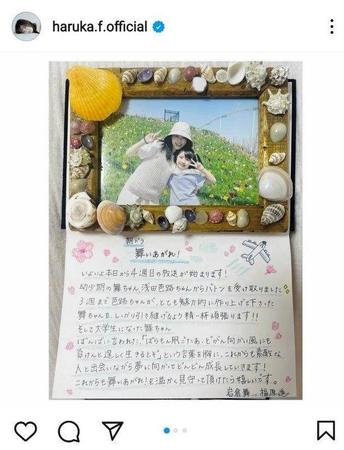 haruka.f.official
朝ドラ
舞いあがれ!
いよいよ本日から4週目の放送が始まります!
幼少期の舞ちゃん、浅田芭路ちゃんからバトンを受け取りました
3週まで芭路ちゃんが、とても魅力的に作り上げて下さった
舞ちゃんを、しっかり引き継げるよう精一杯頑張ります!!
そして大学生になった舞ちゃん
ばんばに言われた、「ばらもん凧ごたあ、どがん向かい風にも
負けんと逞しく生きるとぞ」という言葉を胸に、これからも素敵な
人と出会いながら夢に向かってどんどん成長していきます!
これからも舞いあがれ!を温かく見守って頂けたら嬉しいです。
岩倉舞 福原遥